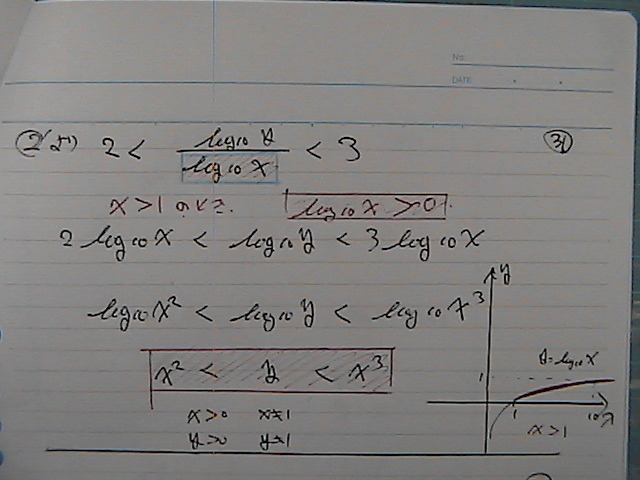 No.
DATE
2 < log10 y / log10 x < 3
x > 1 のとき. log10 x > 0
2 log10 x < log10 y < 3 log10 x
log10 x² < log10 y < log10 x³
x² < y < x³
x>0 x≠1
y>0 y≠1
y
y=log10 x
1
1 10 x
x>1